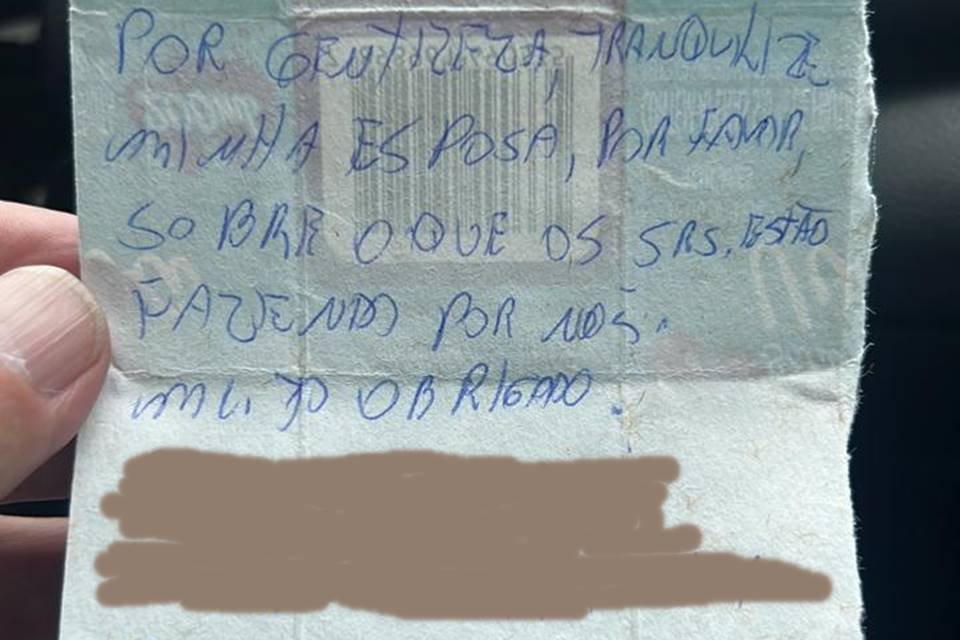 POR GENTILEZA, TRANQUILIZE
MINHA ESPOSA, POR FAVOR,
SOBRE O QUE OS SRS. ESTÃO
FAZENDO POR NÓS.
MUITO OBRIGADO.